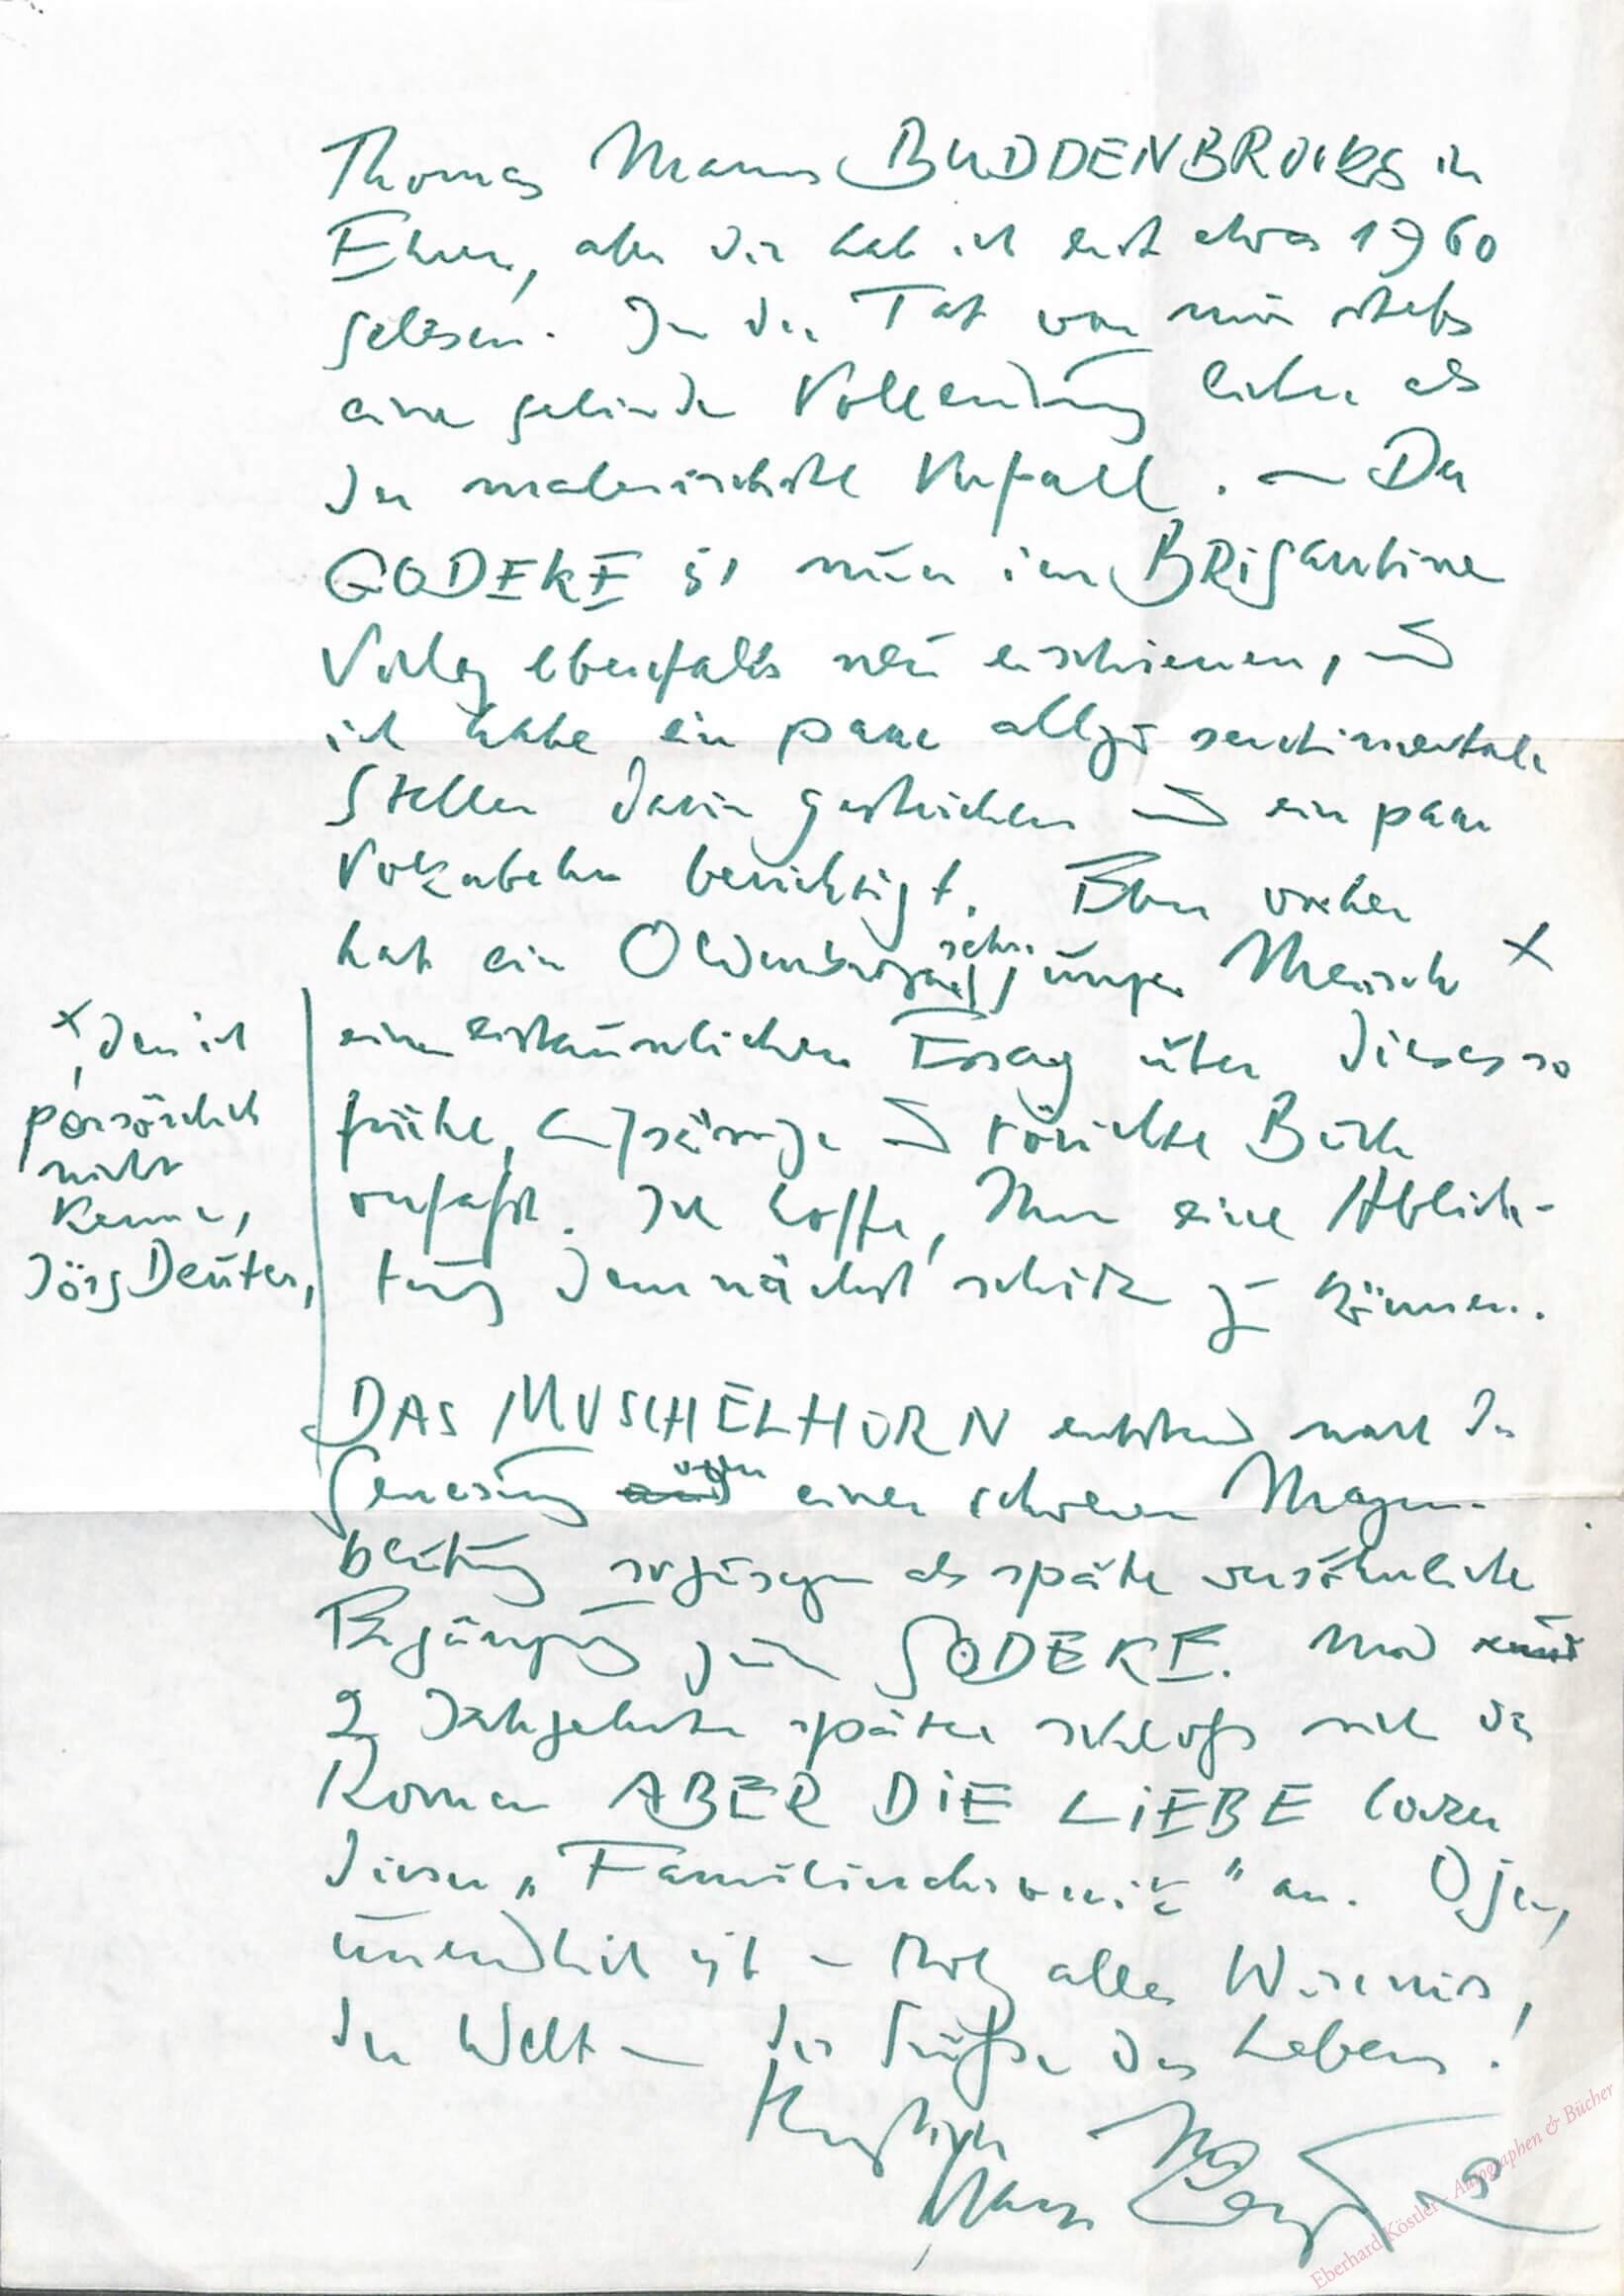 Thomas Manns BUDDENBROOKS in
Ehren, aber die hab ich erst etwa 1960
gelesen. In der Tat war mir stets
eine gelinde Vollendung lieber als
der malerischste Verfall. – Der
GODEKE ist nun im BRIGantine
Verlag ebenfalls neu erschienen, und
ich habe ein paar allzu sentimentale
Stellen darin gestrichen und ein paar
Vokabeln berichtigt. Eben vorher
hat ein Oldenburger, sehr junger Mensch x
x, den ich
persönlich
nicht
kenne,
Jörg Deuter,
einen erstaunlichen Essay über dieses so
frühe, und törichte Buch
verfaßt. Ich hoffe, Ihnen eine Ablich-
tung demnächst schicken zu können.
DAS MUSCHELHORN entstand nach der
Genesung von einer schweren Magen-
blutung sozusagen als späte versöhnliche
Ergänzung zum GODEKE. Und
2 Jahrzehnte später schloß sich der
Roman ABER DIE LIEBE locker
dieser „Familienchronik" an. O ja,
unendlich ist – trotz aller Wirrnis
der Welt – die Süße des Lebens!
Herzlich
Hans Leip
Eberhard Köstler - Autographen & Bücher